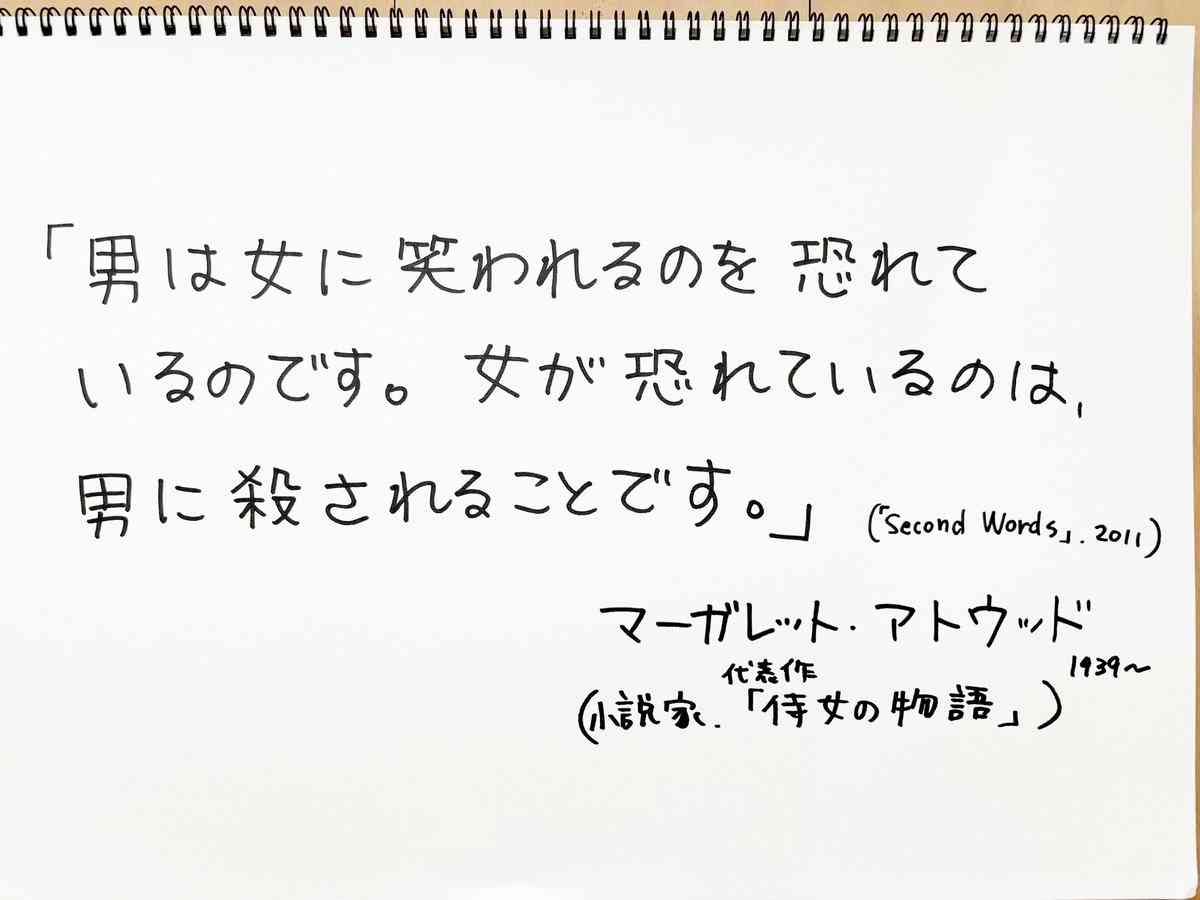 「男は女に笑われるのを恐れて
いるのです。女が恐れているのは、
男に殺されることです。」
(「Second Words」. 2011)
マーガレット・アトウッド
1939〜
代表作
(小説家.「侍女の物語」)